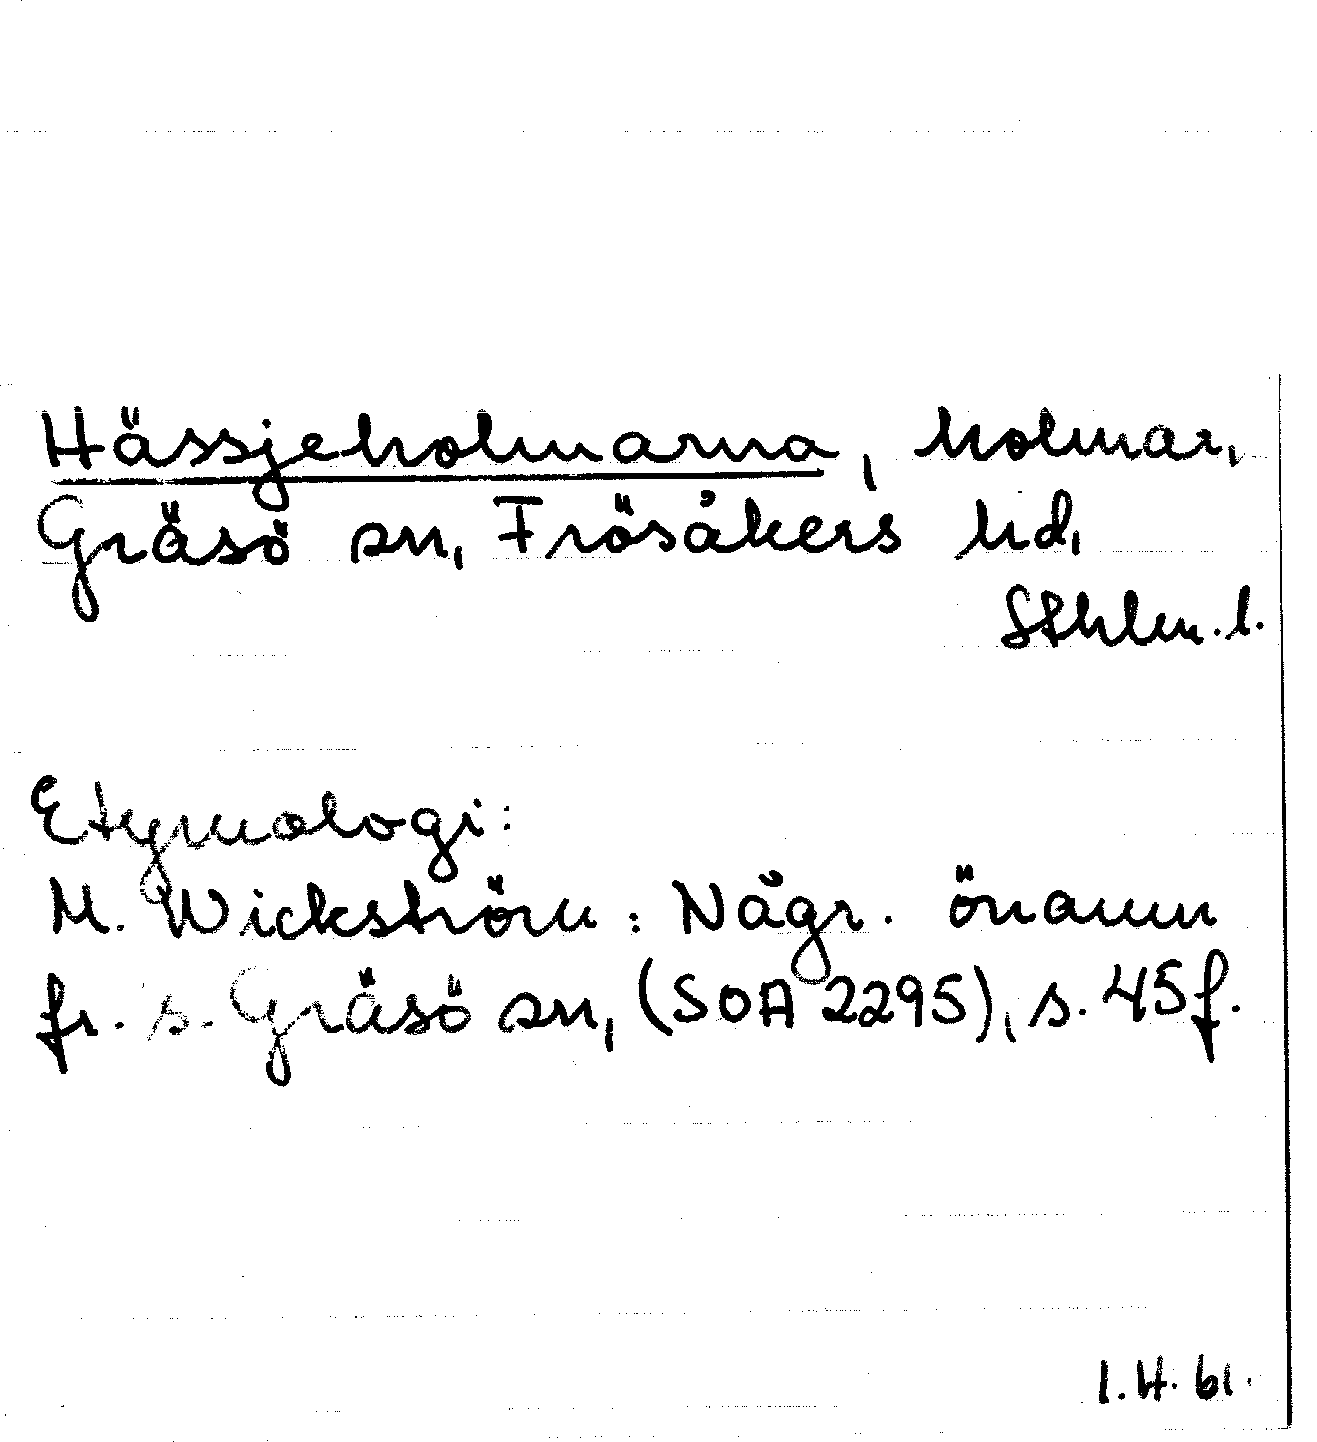 Hässjeholmarna, holmar,
Gräsö sn, Frösåkers hd,
Sthlm. l.
Etymologi:
M. Wickström: Någr. önamn
fr. s. Gräsö sn, (SOA 2295), s. 45f.
I.H. 61.